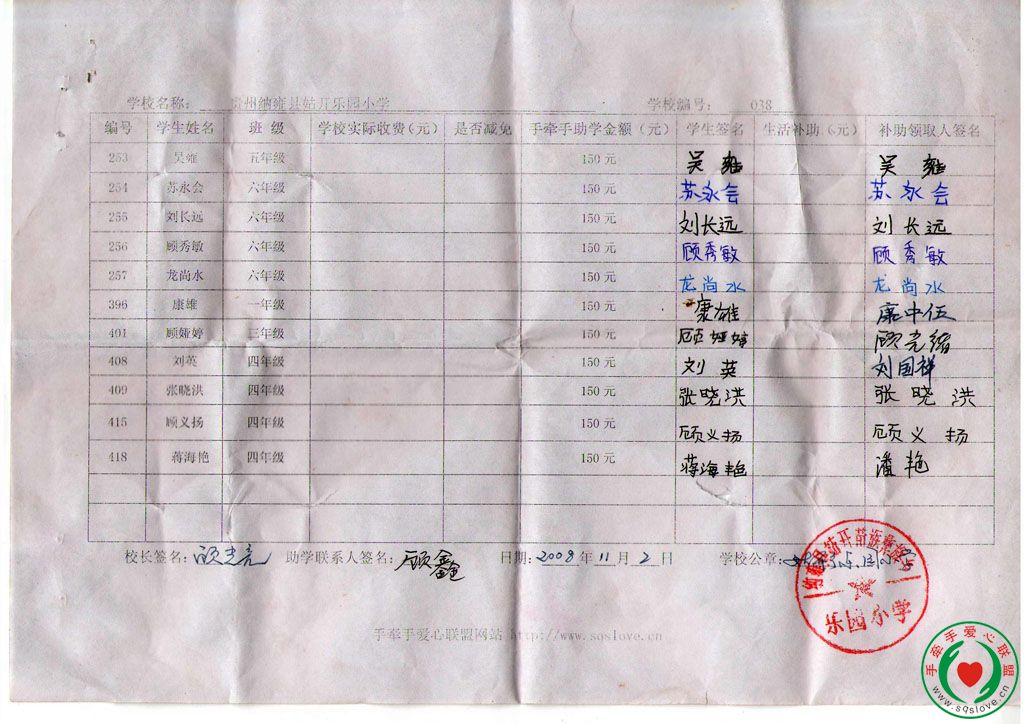 学校名称： 贵州纳雍县姑开乐园小学 学校编号： 038
编号 学生姓名 班 级 学校实际收费(元) 是否减免 手牵手助学金额（元） 学生签名 生活补助(元) 补助领取人签名
253 吴雍 五年级 150 元 吴雍 吴雍
254 苏永会 六年级 150 元 苏永会 苏永会
255 刘长远 六年级 150 元 刘长远 刘长远
256 顾秀敏 六年级 150 元 顾秀敏 顾秀敏
257 龙尚水 六年级 150 元 龙尚水 龙尚水
396 康雄 一年级 150 元 康雄 康中伍
401 顾娅婷 三年级 150 元 顾娅婷
408 刘英 四年级 150 元 刘英 刘国祥
409 张晓洪 四年级 150 元 张晓洪 张晓洪
415 顾义扬 四年级 150 元 顾义扬 顾义扬
418 蒋海艳 四年级 150 元 蒋海艳 潘艳
校长签名： 助学联系人签名： 顾鑫 日期： 2008 年 11 月 2 日 学校公章：
乐园小学
手牵手爱心联盟网站 http://www.sqslove.cn
手牵手爱心联盟
www.sqslove.cn